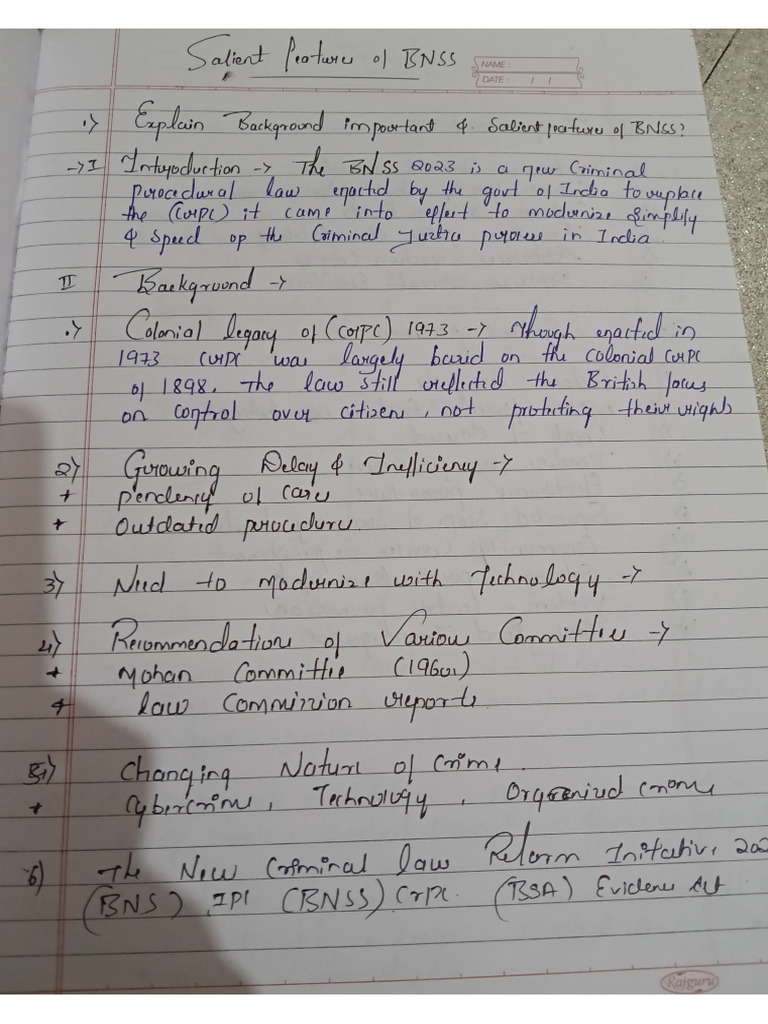 Salient feature of BNSS
NAME :
DATE : / /
1) Explain Background important & Salient features of BNSS?
→ I Introduction → The BNSS 2023 is a new Criminal
procedural law enacted by the govt of India to replace
the (CrPC) it came into effect to modernize simplify
& Speed op the Criminal Justice process in India
II Background →
1) Colonial legacy of (CrPC) 1973 → Though enacted in
1973 CrPC was largely based on the colonial CrPC
of 1898, The law still reflected the British focus
on control over citizens, not protecting their rights
2) Growing Delay & Inefficiency →
+ Pendency of Cases
+ Outdated procedure
3) Need to modernize with Technology →
4) Recommendations of Various Committee →
+ Mohan Committie (1960s)
+ law Commission reports
5) Changing Nature of Crime
+ Cybercrime, Technology, Organized crome
6) The New Criminal law Reform Initiative 202
(BNS) IPC (BNSS) CrPC (BSA) Evidence Act
Rajguru